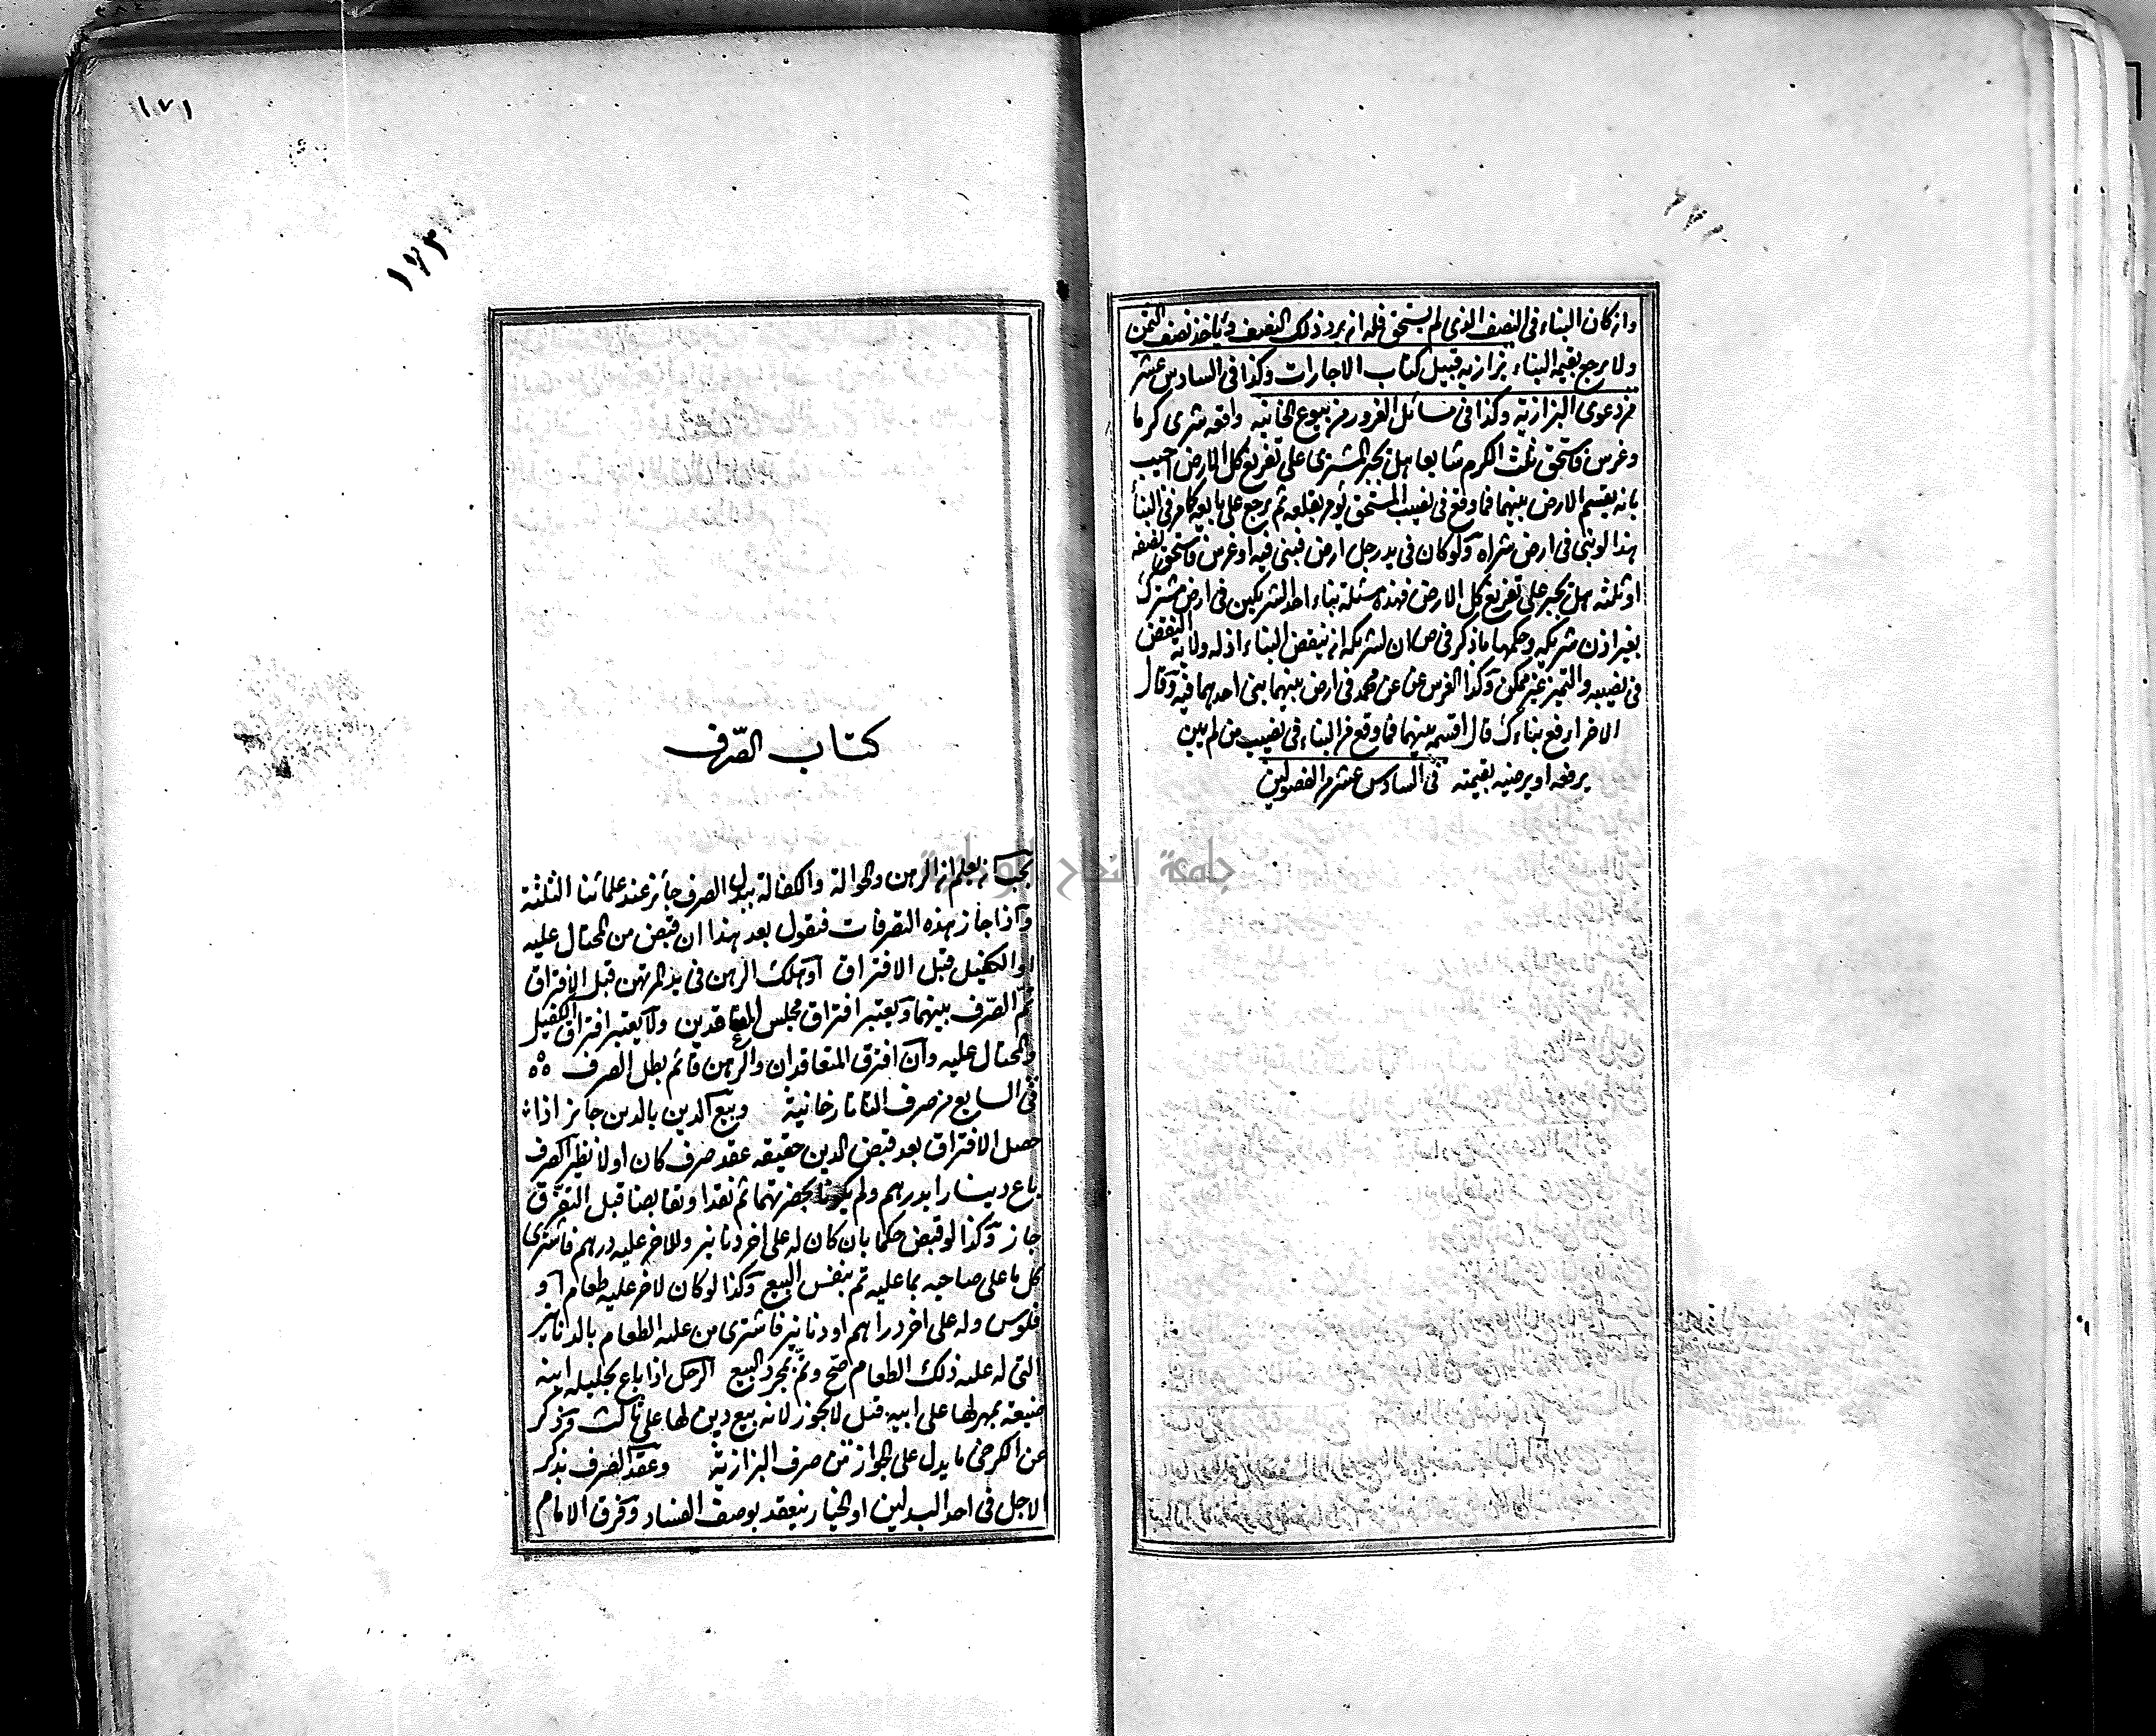 وان كان البناء فى النصف الذى لم يستحق فله ان يرد ذلك النصف ويأخذ نصف الثمن
ولا يرجع بقيمة البناء بزازيه قبيل كتاب الاجارات وكذا فى السادس عشر
من دعوى البزازية وكذا فى مسائل الغرور من بيوع الخانيه واقعه شرى كرما
وغرس فاستحق ثلث الكرم شايعا هل يجبر المشترى على تفريغ كل الارض اجيب
بانه يقسم الارض بينهما فما وقع فى نصيب المستحق يؤمر بقلعه ثم يرجع على بايعه كما مر فى البنأ
هذا لو بنى فى ارض شراه ولو كان فى يد رجل ارض فبنى فيه او غرس فاستحق نصفه
او ثلثه هل يجبر على تفريغ كل الارض فهذه مسئلة بناء احد الشريكين فى ارض مشترك
بغير اذن شريكه وحكمها ما ذكر فى ان لشريكه ان ينقض البناء اذ له ولاية النقض
فى نصيبه والتميز غير ممكن وكذا الغرس عن محمد فى ارض بينهما بنى احدهما فيه وقال
الاخر ارفع بناءك قال اقسمه بينهما فما وقع من البناء فى نصيب من لم يبن
يرفعه او يرضيه بقيمته فى السادس عشر من الفصولين
١٧١
١٧٣
كتاب الصّرف
يجب ان يعلم ان الرهن والحوالة والكفالة ببدل الصرف جائز عند علمائنا الثلثة
واذا جاز هذه التصرفات فنقول بعد هذا ان قبض من المحتال عليه
او الكفيل قبل الافتراق او هلك الرهن فى يد المرتهن قبل الافتراق
تم الصّرف بينهما ويعتبر افتراق مجلس المتعاقدين ولا يعتبر افتراق الكفيل
والمحتال عليه وان افترق المتعاقدان والرهن قائم بطل الصرف ٥٥
فى السابع من صرف التاتارخانية وبيع الدين بالدين جائز اذا
حصل الافتراق بعد قبض الدين حقيقه عقد صرف كان او لا نظير الصرف
باع دينارا بدرهم ولم يكونا بحضرتهما ثم نقدا وتقابضا قبل التفرّق
جاز وكذا لو قبض حكما بان كان له على اخر دنانير وللاخر عليه درهم فاشترى
كل ما على صاحبه بما عليه تم بنفس البيع وكذا لو كان لاخر عليه طعام او
فلوس وله على اخر دراهم او دنانير فاشترى من عليه الطعام بالدنانير
التى له عليه ذلك الطعام صح وتمّ بمجرد البيع الرجل اذا باع بحليلة ابنه
ضيعته بمهرلها على ابيه قيل لا يجوز لانه بيع دين لها على ثالث وذكر
عن الكرخى ما يدل على الجواز من صرف البزازية وعقد الصرف بذكر
الاجل فى احد البدلين او الخيار ينعقد بوصف الفساد وفرق الامام
جامعة النجاح الوطنية